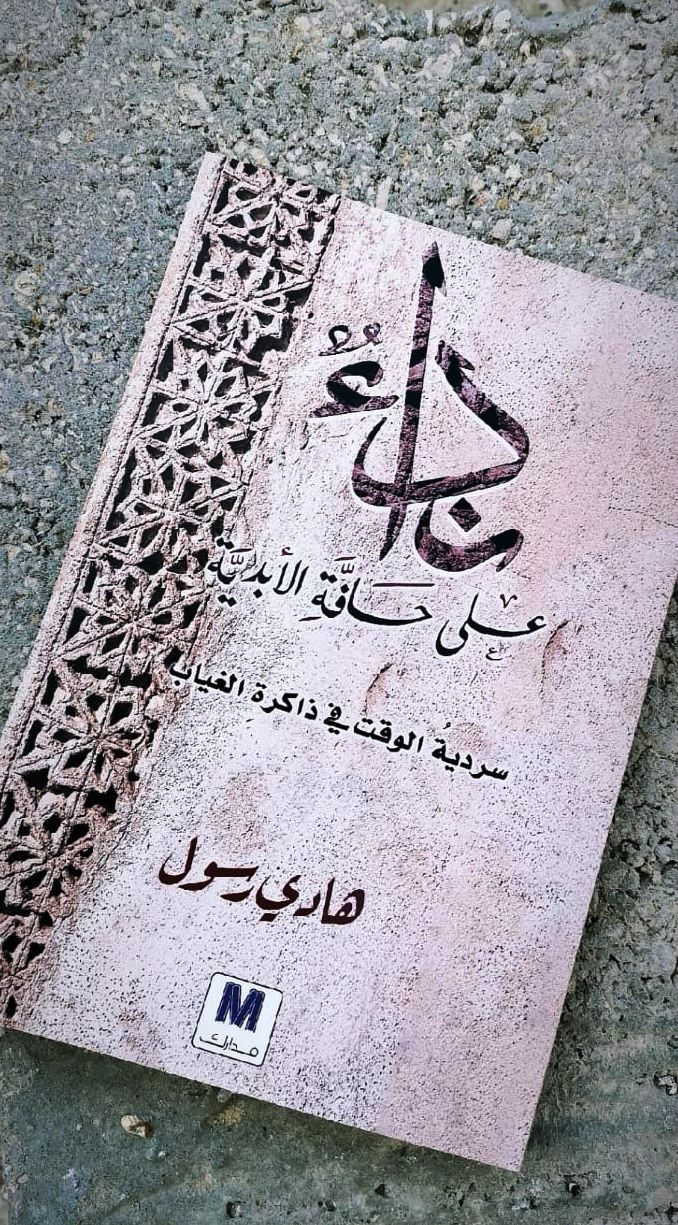 نداءٌ
على حَافَّةِ الأبديَّة
سرديةُ الوقت في ذاكرة الغياب
هادي رسول
M
مدارك